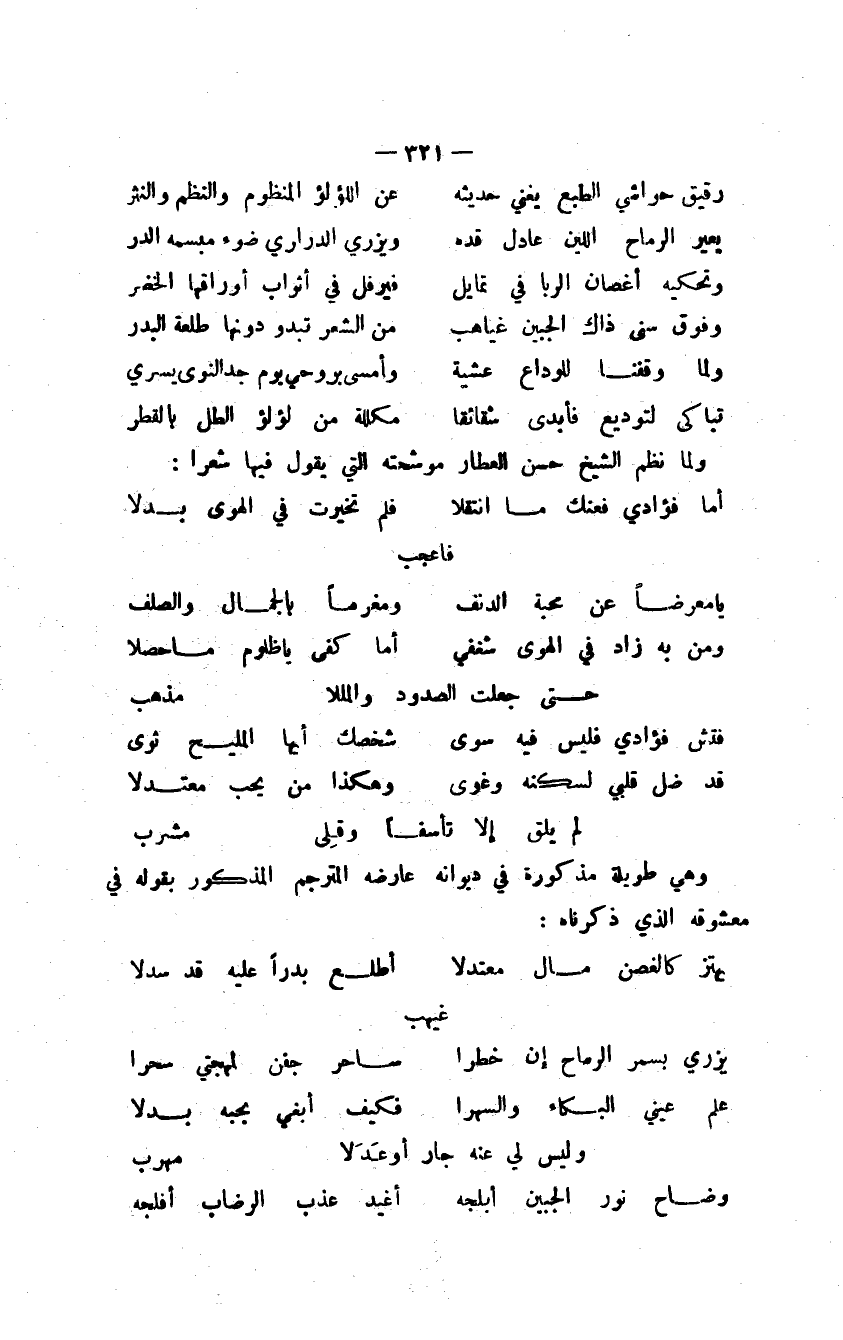 — ٣٢١ —
رقيق حواشي الطبع يغني حديثه عن اللؤلؤ المنظوم والنظم والنثر
يعير الرماح اللين عادل قده ويزري الدراري ضوء مبسمه الدر
وتحكيه أغصان الربا في تمايل فيرفل في أثواب أوراقها الخضر
وفوق سنى ذاك الجبين غياهب من الشعر تبدو دونها طلعة البدر
ولما وقفنا للوداع عشية وأمسى بروحي يوم جد النوى يسري
تباكى لتوديع فأبدى شقائقا مكللة من لؤلؤ الطل بالقطر
ولما نظم الشيخ حسن العطار موشحته التي يقول فيها شعرا :
أما فؤادي فعنك ما انتقلا فلم تخيرت في الهوى بدلا
فاعجب
يامعرضاً عن محبة الدنف ومغرماً بالجمال والصلف
ومن به زاد في الهوى شغفي أما كفى ياظلوم ماحصلا
حتى جعلت الصدود والمللا مذهب
فتش فؤادي فليس فيه سوى شخصك أيها المليح ثوى
قد ضل قلبي لسكنه وغوى وهكذا من يحب معتدلا
لم يلق إلا تأسفاً وقِلى مشرب
وهي طويلة مذكورة في ديوانه عارضه المترجم المذكور بقوله في
معشوقه الذي ذكرناه :
يهتز كالغصن مال معتدلا أطلع بدراً عليه قد سدلا
غيهب
يزري بسمر الرماح إن خطرا ساحر جفن لمهجتي سحرا
علم عيني البكاء والسهرا فكيف أبغي بحبه بدلا
وليس لي عنه جار أوعَدَلا مهرب
وضاح نور الجبين أبلجه أغيد عذب الرضاب أفلجه